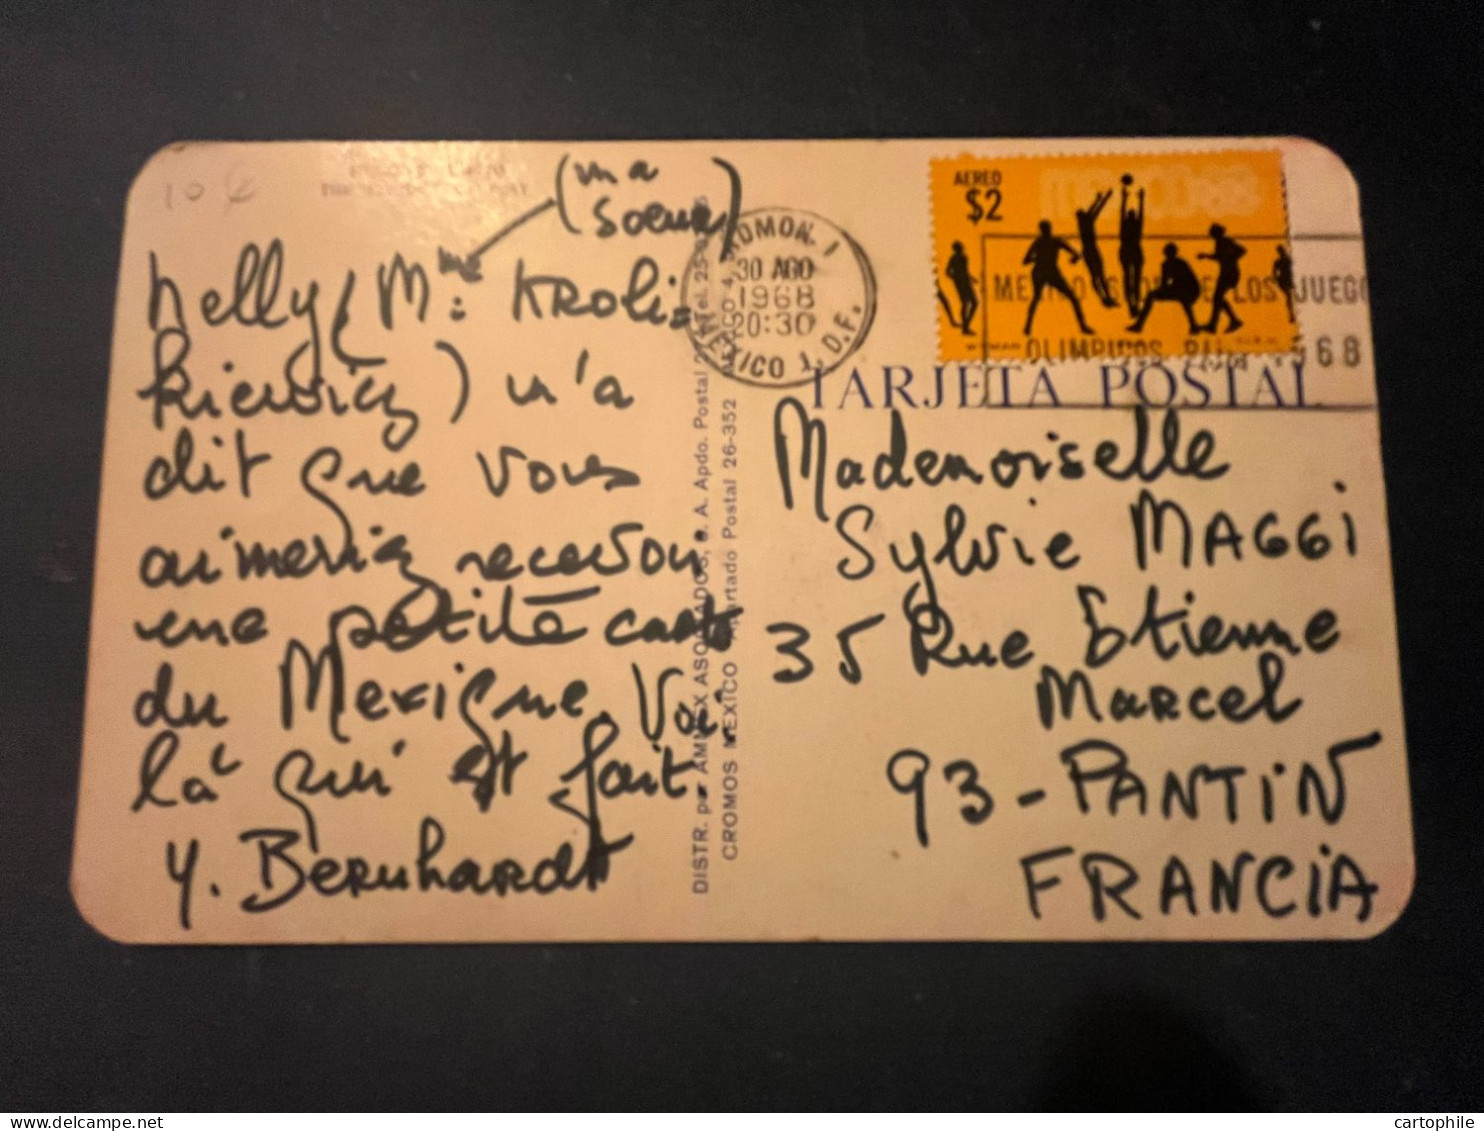 10 €
(ma
soeur)
Nelly (Mme Krolis
kiewicz) m'a
dit que vous
aimeriez recevoir
une petite carte
du Mexique. Voi
là qui est fait.
Y. Bernhardt
DISTR. por AMMEX ASOCIADOS, S. A. Apdo. Postal
CROMOS MEXICO Apartado Postal 26-352 MEXICO 4, D
30 AGO
1968
20:30
MEXICO 1, D.F.
AEREO
$2
MEXICO LOS JUEGO
OLIMPICOS 1968
TARJETA POSTAL
Mademoiselle
Sylvie MAGGI
35 Rue Etienne
Marcel
93 - PANTIN
FRANCIA
cartophile.com